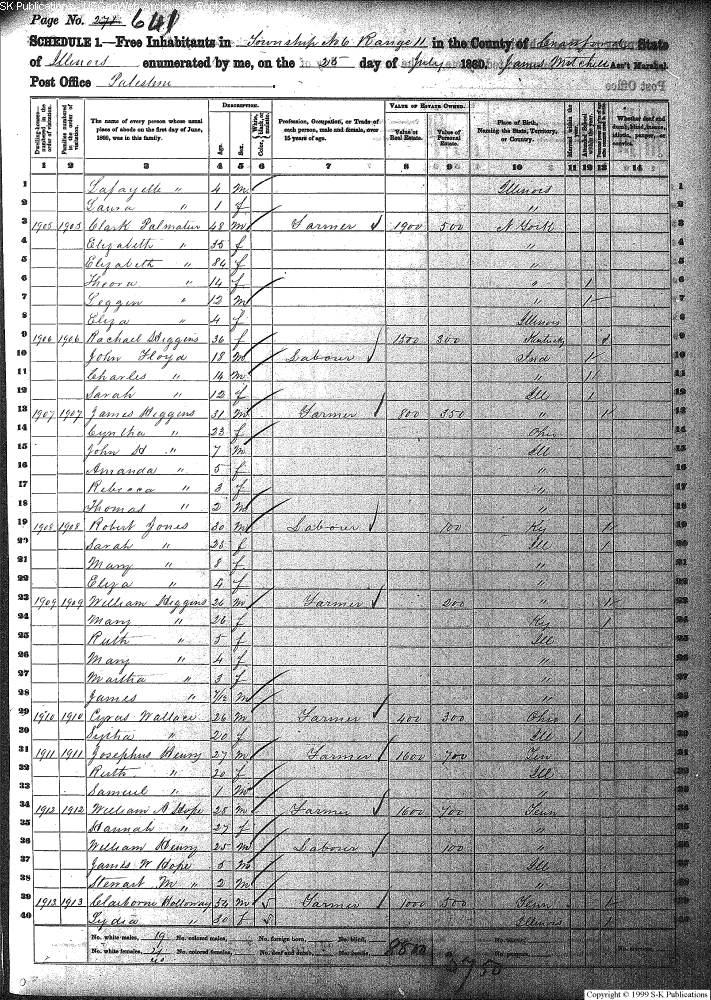 SK Publications - USGenWeb Archives - Rootsweb
Page No. 271 641
SCHEDULE 1.—Free Inhabitants in Township No 6 Range 11 in the County of Crawford State
of Illinois enumerated by me, on the 25 day of July 1860. James Mitchell Ass't Marshal.
Post Office Palestine
DESCRIPTION. VALUE OF ESTATE OWNED.
Dwelling-houses—numbered in the order of visitation. Families numbered in the order of visitation. The name of every person whose usual place of abode on the first day of June, 1860, was in this family. Age. Sex. Color, White, black, or mulatto. Profession, Occupation, or Trade of each person, male and female, over 15 years of age. Value of Real Estate. Value of Personal Estate. Place of Birth, Naming the State, Territory, or Country. Married within the year. Attended School within the year. Whether deaf and dumb, blind, insane, idiotic, pauper, or convict.
1 2 3 4 5 6 7 8 9 10 11 12 13 14
1 Lafayette " 4 m Illinois 1
2 Laura " 1 f " 2
3 1905 1905 Clark Palmatier 48 m Farmer 1900 500 N York 3
4 Elizabeth " 35 f " 4
5 Elizabeth " 84 f " 5
6 " 14 f " 1 6
7 " 12 m " 1 7
8 Eliza " 4 f Illinois 8
9 1906 1906 Rachael Higgins 36 f 1500 300 Kentucky 1 9
10 John Floyd 18 m Labourer Ind 1 10
11 Charles " 14 m " 1 11
12 Sarah " 12 f Ill 1 12
13 1907 1907 James Higgins 31 m Farmer 800 350 " 1 13
14 Cyntha " 23 f Ohio 14
15 John H " 7 m Ill 15
16 Amanda " 5 f " 16
17 Rebecca " 3 f " 17
18 Thomas " 2 m " 18
19 1908 1908 Robert Jones 30 m Labourer 100 Ky 1 19
20 Sarah " 25 f Ill 1 20
21 Mary " 8 f " 21
22 Eliza " 4 f 22
23 1909 1909 William Higgins 26 m Farmer 200 " 1 23
24 Mary " 26 f Ky 1 24
25 Ruth " 5 f Ill 25
26 Mary " 4 f " 26
27 Martha " 3 f 27
28 James " m " 28
29 1910 1910 Cyrus Wallace 26 m Farmer 400 300 Ohio 1 29
30 " 20 f Ill 1 30
31 1911 1911 Josephus Henry 27 m Farmer 1600 700 Ten 31
32 Ruth " 20 f Ill 32
33 Samuel " 1 m " 33
34 1912 1912 William A Hope 28 m Farmer 1600 700 Tenn 34
35 Hannah " 27 f " 35
36 William Henry 25 m Labourer 100 " 36
37 James W Hope 5 m Ill 37
38 Stewart M " 2 m " 38
39 1913 1913 Claiborne Holloway 54 m Farmer 1000 500 Tenn 1 39
40 Lydia " 30 f Illinois 1 40
No. white males, 19 No. colored males, No. foreign born, No. blind,
No. white females, No. colored females, No. deaf and dumb, No. insane, No. idiotic, No. paupers, No. convicts,
8800 3750
Copyright © 1999 S-K Publications